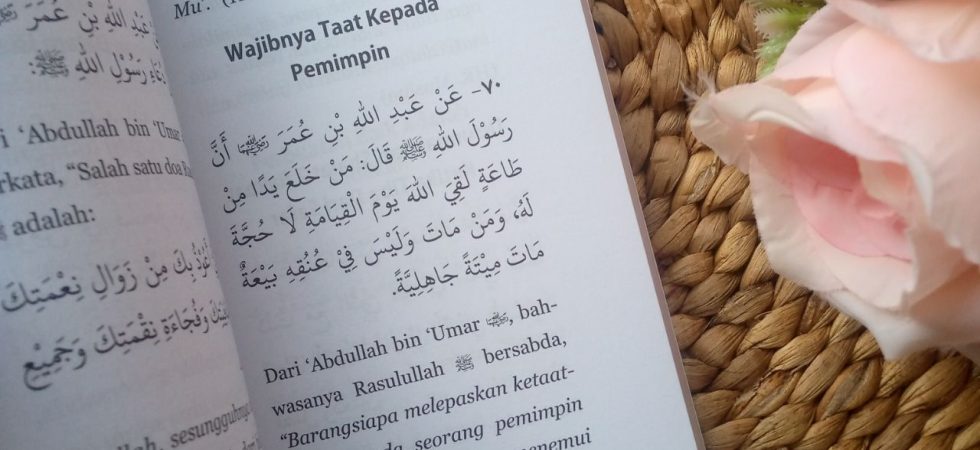 عَبْدِ اللهِ بْنِ عُمَرَ
رَسُوْلِ اللهِ ﷺ:
'Abdullah bin 'Umar
“Salah satu doa
ﷺ adalah:
بِكَ مِنْ زَوَالِ نِعْمَتِكَ
وَفُجَاءَةِ نِقْمَتِكَ وَجَمِيْعِ
sesungguhnya
Mu'.
Wajibnya Taat Kepada
Pemimpin
٧٠- عَنْ عَبْدِ اللهِ بْنِ عُمَرَ ﵄ أَنَّ
رَسُوْلَ اللهِ ﷺ قَالَ: مَنْ خَلَعَ يَدًا مِنْ
طَاعَةٍ لَقِيَ اللهَ يَوْمَ الْقِيَامَةِ لَا حُجَّةَ
لَهُ، وَمَنْ مَاتَ وَلَيْسَ فِيْ عُنُقِهِ بَيْعَةٌ
مَاتَ مِيْتَةً جَاهِلِيَّةً.
Dari 'Abdullah bin 'Umar ﵄, bah-
wasanya Rasulullah ﷺ bersabda,
“Barangsiapa melepaskan ketaat-
seorang pemimpin
menemui